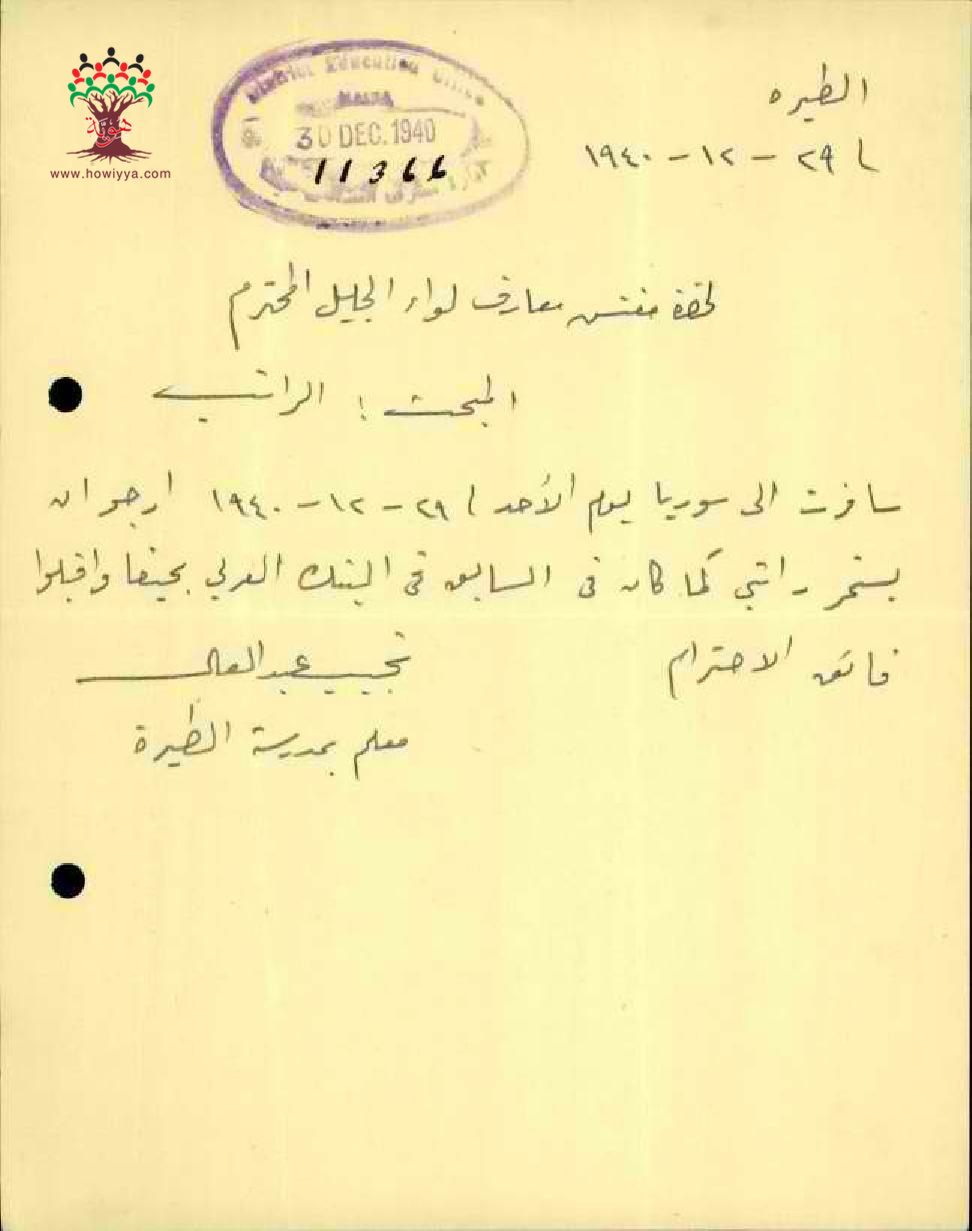 هوية
www.howiyya.com
District Education Office
HAIFA
30 DEC. 1940
11366
الطيره
٢٩ - ١٢ - ١٩٤٠
لحضرة مفتش معارف لواء الجليل المحترم
المبحث : الراتب
سافرت الى سوريا يوم الأحد ٢٩ - ١٢ - ١٩٤٠ ارجو ان
يستمر راتبي كما كان في السابق في البنك العربي بحيفا واقبلوا
فائق الاحترام
نجيب عبد العال
معلم بمدرسة الطيرة